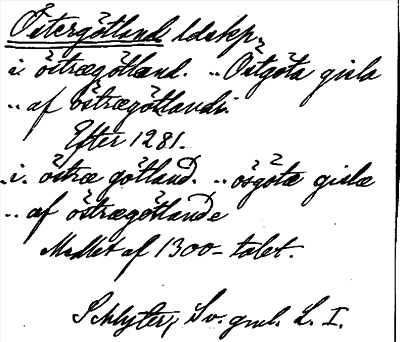 Östergötland ldskp.
i. östrægötlænd. .. Ostgöta gisla
.. af östrægötlandi.
Efter 1281.
.i. östræ götland. .. ösgötæ gislæ
.. æf östrægötlande
Medlet af 1300-talet.
Schlyter, Sv. gml. L. I.